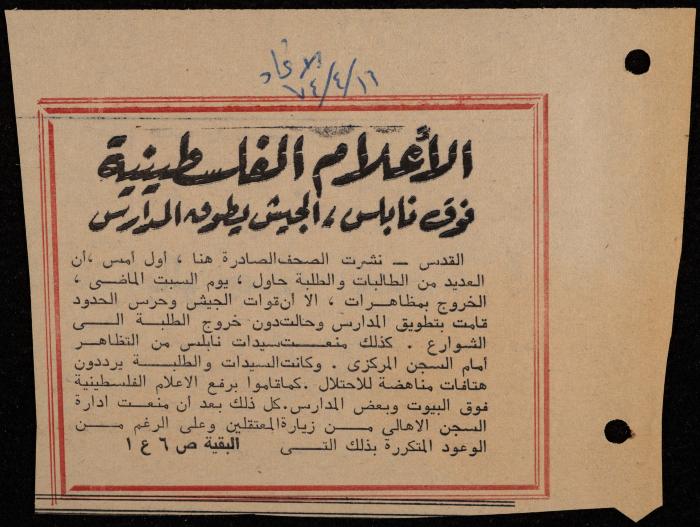 الاتحاد
٧٤/٤/١٦
الأعلام الفلسطينية
فوق نابلس، الجيش يطوق المدارس
القدس — نشرت الصحف الصادرة هنا ، أول أمس ،أن
العديد من الطالبات والطلبة حاول ، يوم السبت الماضي ،
الخروج بمظاهرات ، الا ان قوات الجيش وحرس الحدود
قامت بتطويق المدارس وحالت دون خروج الطلبة الى
الشوارع . كذلك منعت سيدات نابلس من التظاهر
أمام السجن المركزى . وكانت السيدات والطلبة يرددون
هتافات مناهضة للاحتلال .كما قاموا برفع الاعلام الفلسطينية
فوق البيوت وبعض المدارس.كل ذلك بعد ان منعت ادارة
السجن الاهالي من زيارة المعتقلين وعلى الرغم من
الوعود المتكررة بذلك التى البقية ص ٦ ع ١